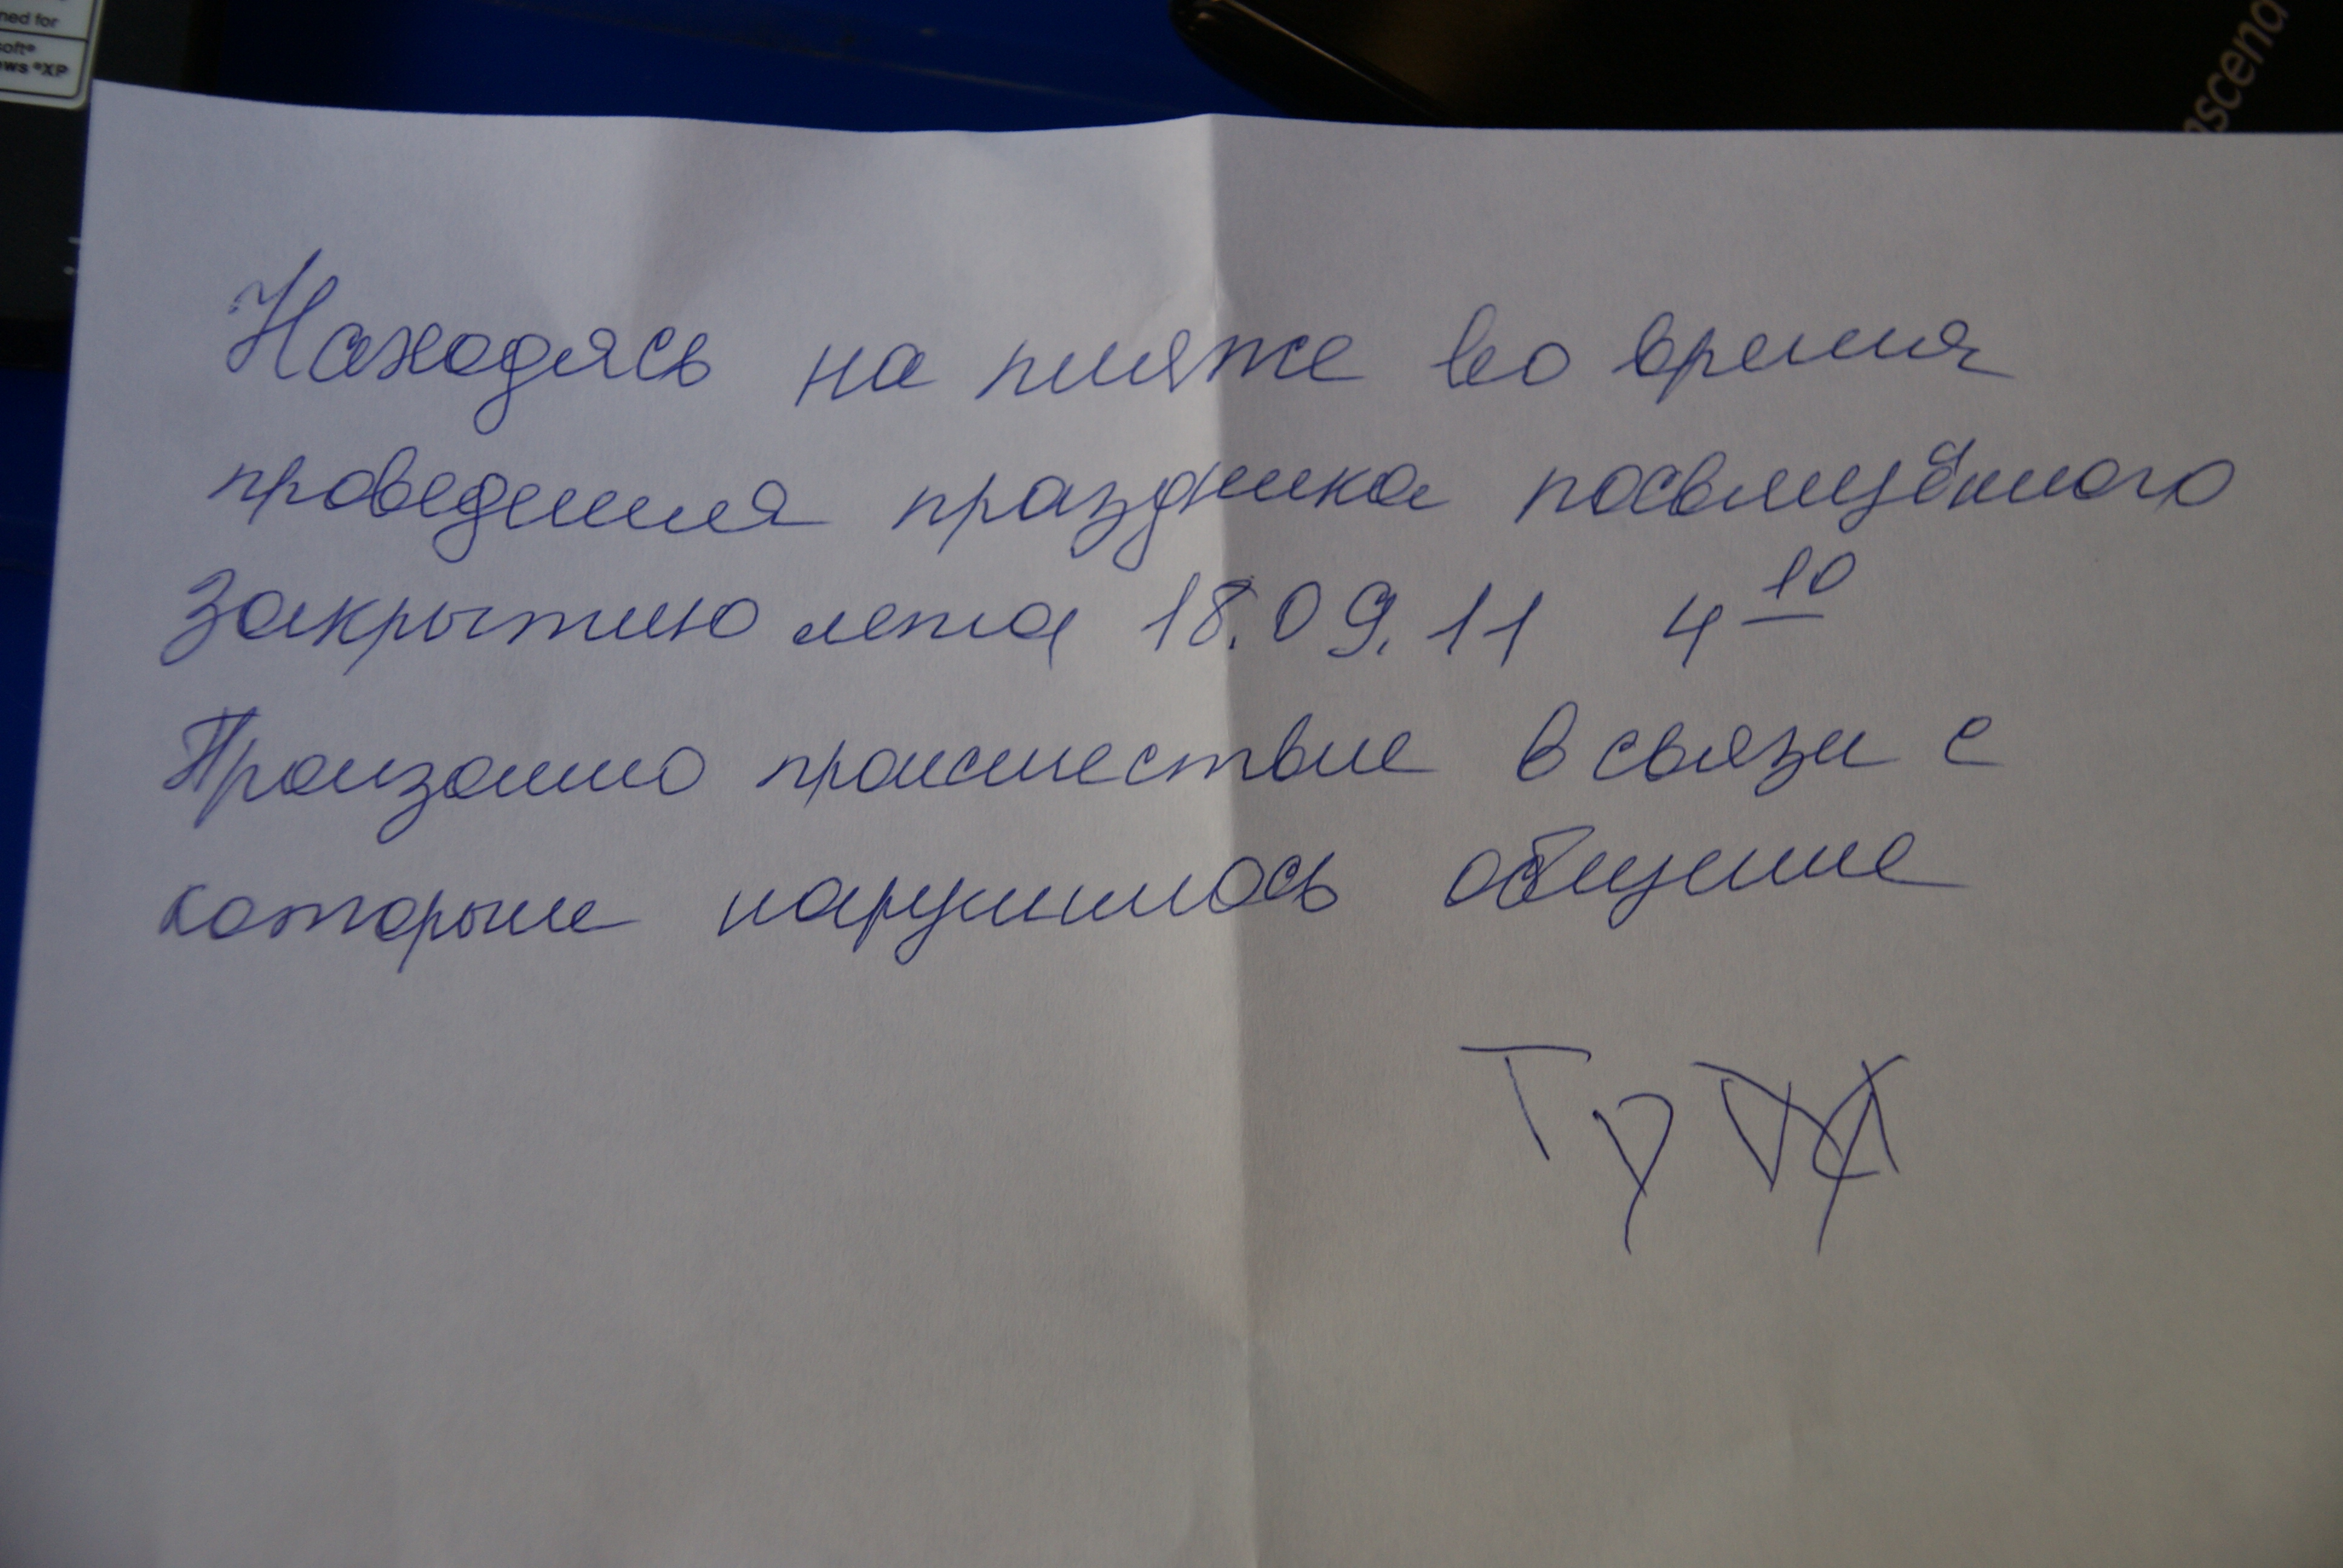 ned for
soft®
ws ®XP
nscend
Находясь на пляже во время
проведения праздника посвящённого
Закрытию лета 18.09.11 4 10
Произошло происшествие в связи с
которым нарушилось общение